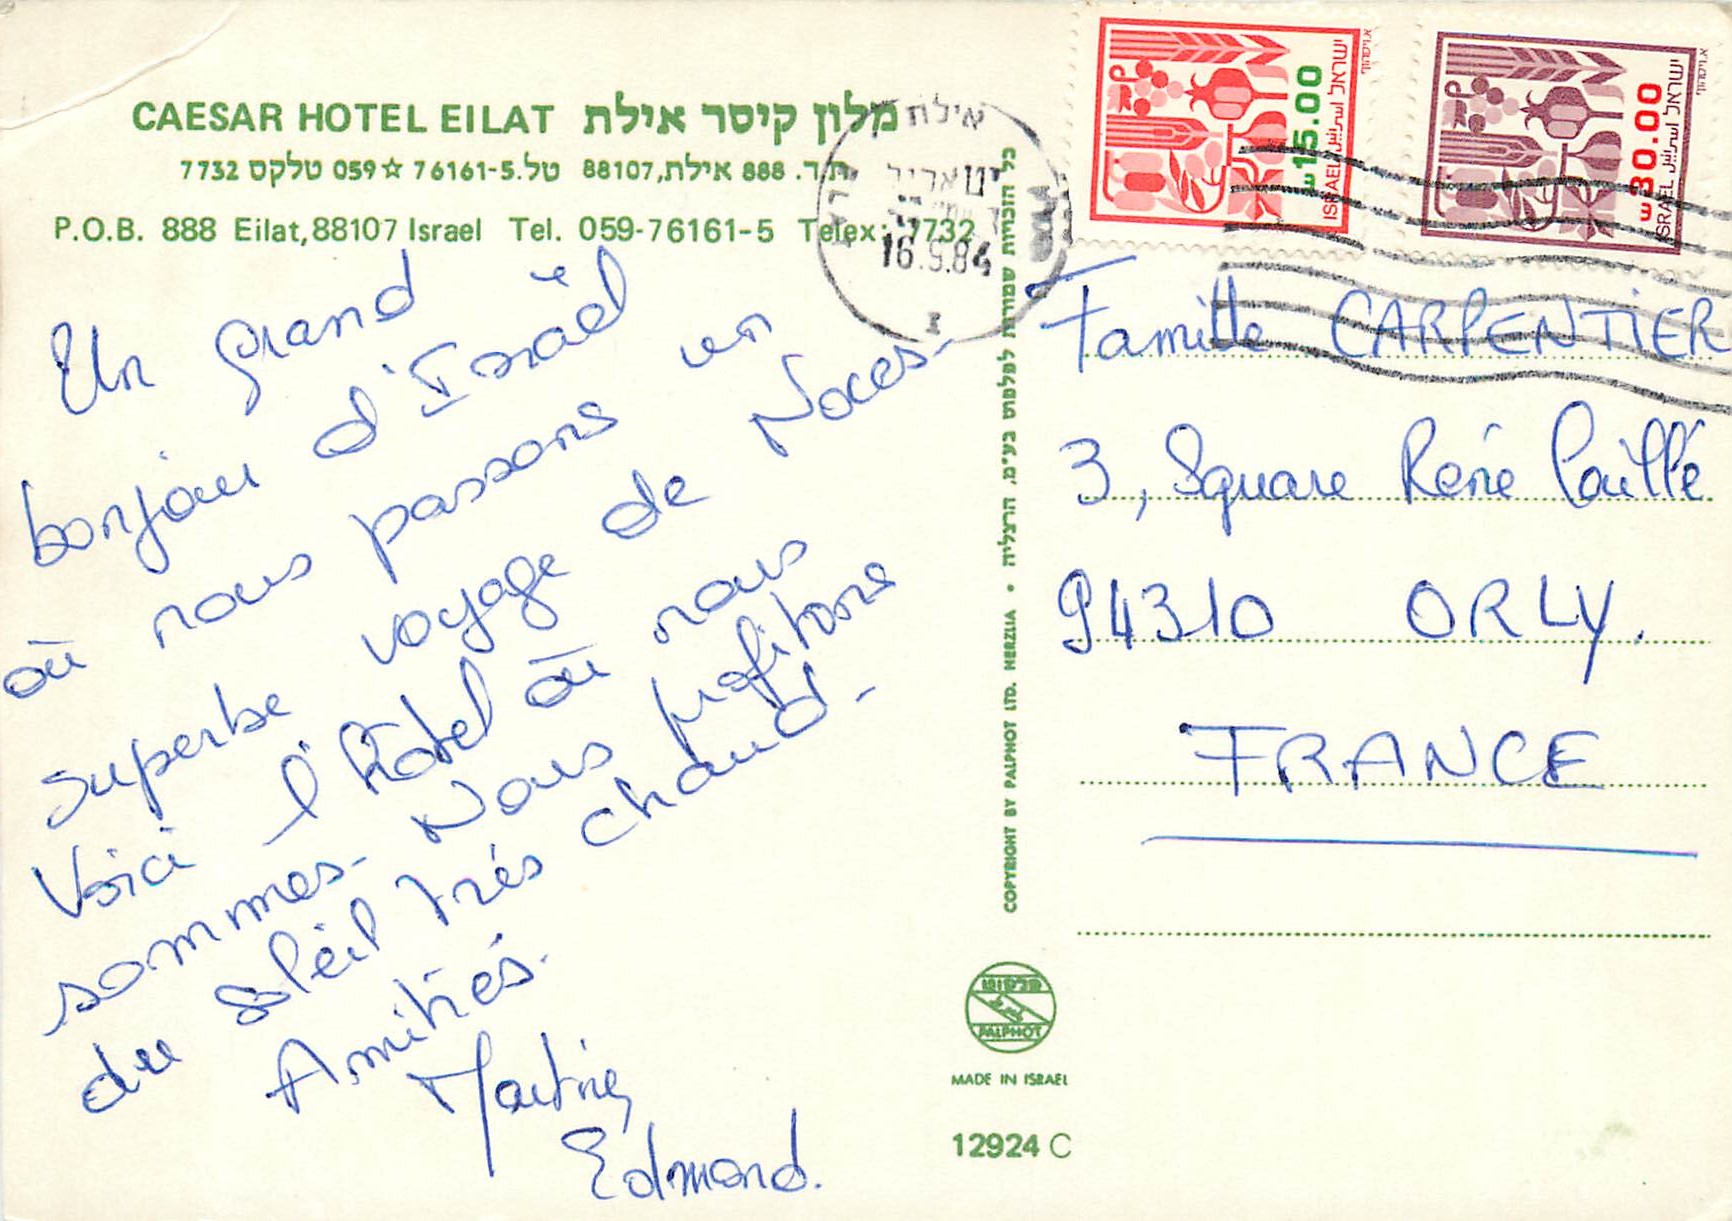 CAESAR HOTEL EILAT מלון קיסר אילת
ת.ד. 888 אילת,88107 טל.76161-5 ☆ 059 טלקס 7732
P.O.B. 888 Eilat,88107 Israel Tel. 059-76161-5 Telex: 7732
Un grand
bonjour d'Israël
où nous passons un
superbe voyage de Noces-
Voici l'hôtel où nous
sommes- Nous profitons
du soleil très chaud-
Amitiés.
Martine,
Edmond.
אילת
16.9.84
ישראל
ISRAEL
15.00
ישראל
ISRAEL
30.00
Famille CARPENTIER
3, Square René Caillé
94310 ORLY.
FRANCE
כל הזכויות שמורות לפלפוט בע"מ, הרצליה • COPYRIGHT BY PALPHOT LTD. HERZLIA
פלפוט
PALPHOT
MADE IN ISRAEL
12924 C